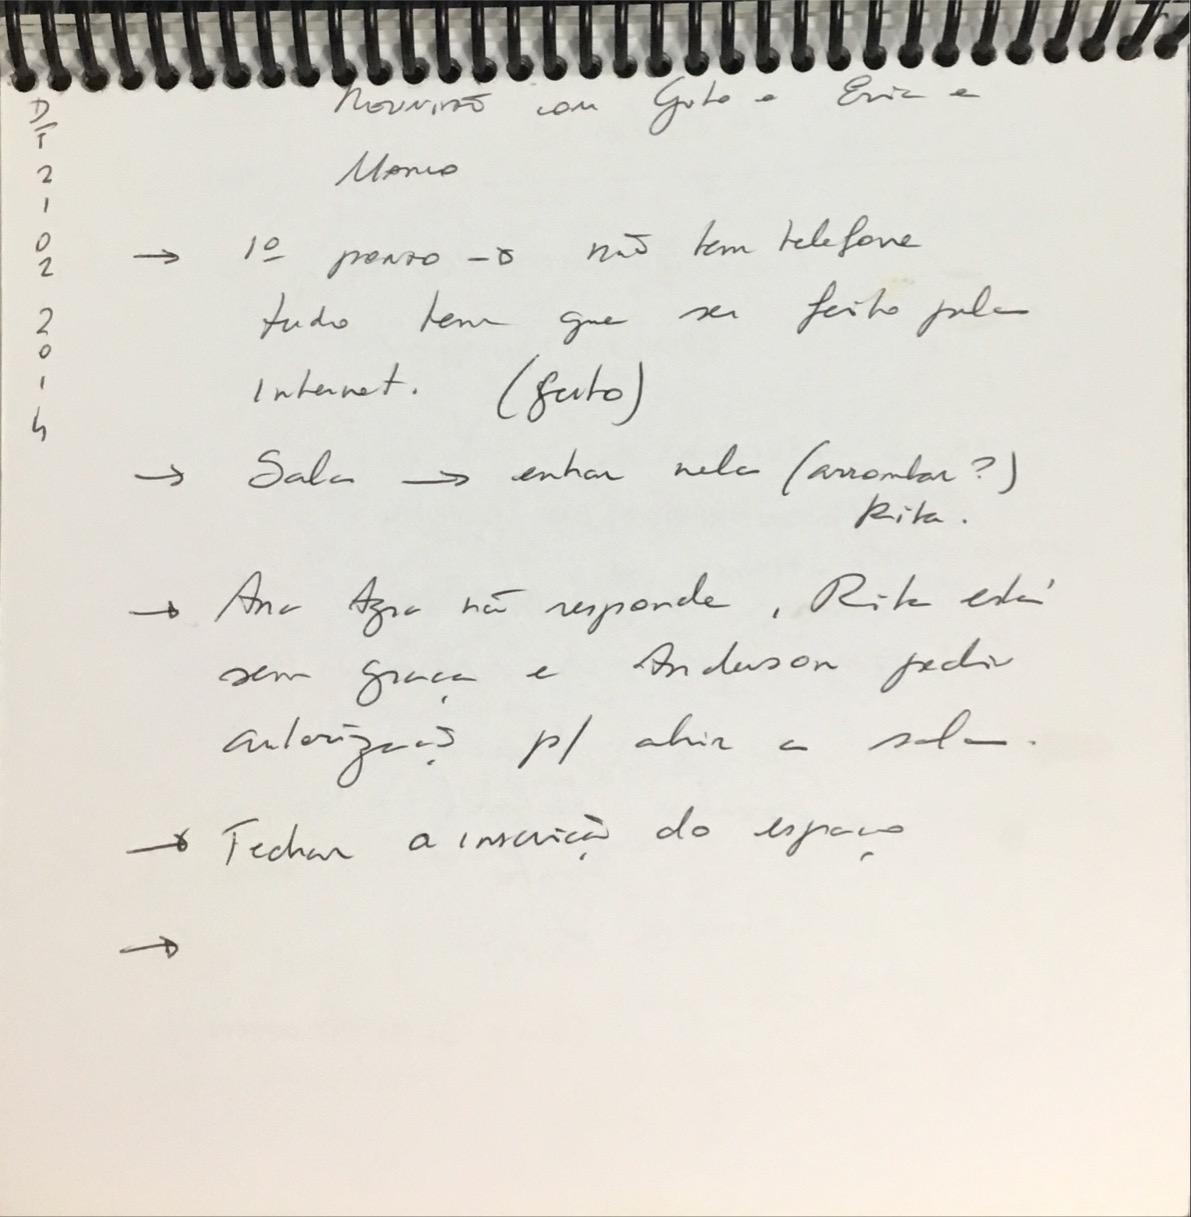 D/T
2
1
0
2
2
0
1
4
Reunião com Guto e Eric e
Marco
→ 1º ponto → não tem telefone
tudo tem que ser feito pela
internet. (feito)
→ Sala → entrar nela (arrombar?)
Rita.
→ Ana não responde, Rita está
sem graça e Anderson pediu
autorização p/ abrir a sala.
→ Fechar a inscrição do espaço
→